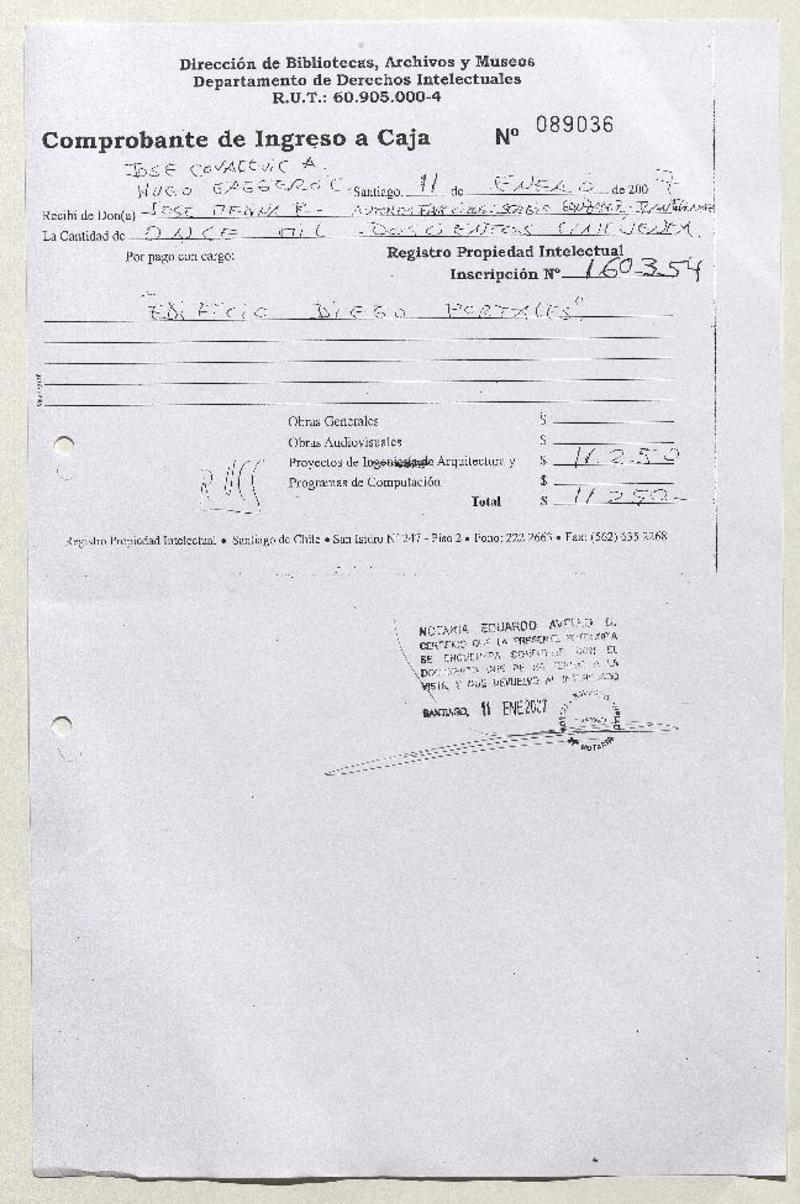 Dirección de Bibliotecas, Archivos y Museos
Departamento de Derechos Intelectuales
R.U.T.: 60.905.000-4
Comprobante de Ingreso a Caja Nº 089036
JOSE COVACEVIC A.
HUGO GAGGERO C. Santiago, 11 de ENERO de 2007
Recibí de Don(a) JOSE MEDINA R- AUTORES SERGIO GONZALEZ
La Cantidad de ONCE MIL DOSCIENTOS CINCUENTA
Por pago con cargo: Registro Propiedad Intelectual
Inscripción Nº 160.354
"EDIFICIO DIEGO PORTALES"
Obras Generales $
Obras Audiovisuales $
Proyectos de Ingeniería de Arquitectura y $ 11.250
Programas de Computación $
Total $ 11.250-
Registro Propiedad Intelectual • Santiago de Chile • San Isidro Nº 247 - Piso 2 • Fono: 222 2663 • Fax: (562) 635 2268
NOTARIA EDUARDO AVELLO
CERTIFICO QUE LA PRESENTE FOTOCOPIA
SE ENCUENTRA CONFORME CON EL
DOCUMENTO QUE SE HA TENIDO A LA
VISTA Y QUE DEVUELVO AL INTERESADO
SANTIAGO, 11 ENE 2007
NOTARIA